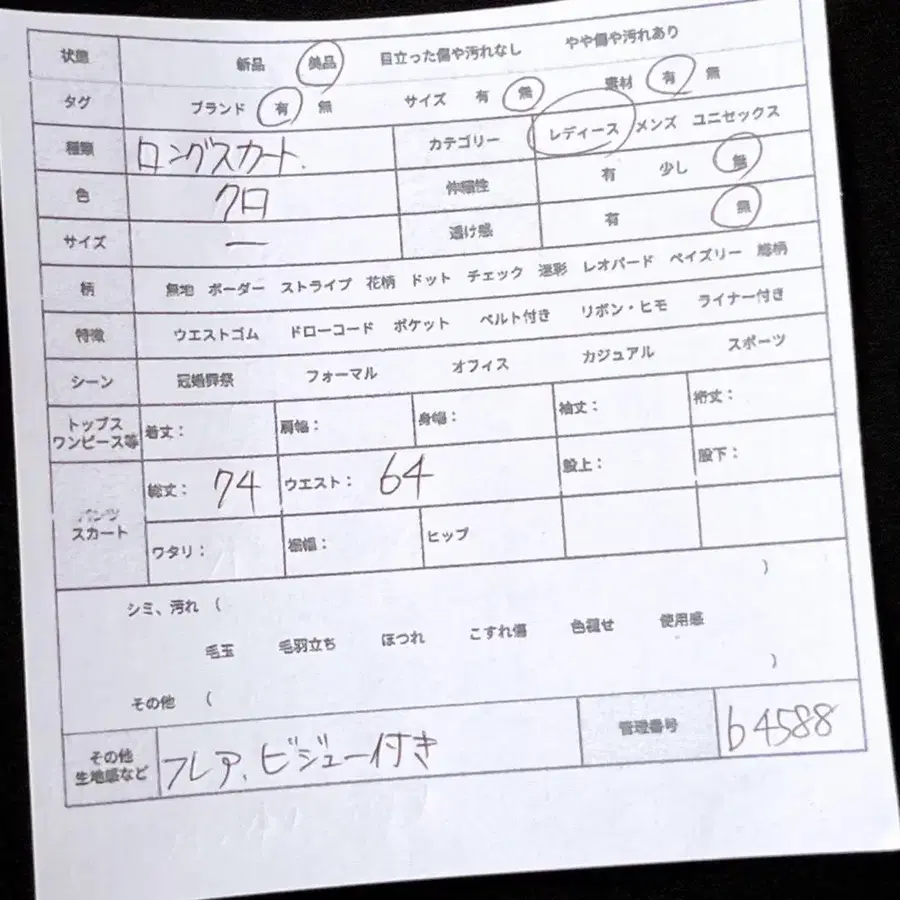 状態 新品 美品 目立った傷や汚れなし やや傷や汚れあり
タグ ブランド 有 無 サイズ 有 無 素材 有 無
種類 ロングスカート. カテゴリー レディース メンズ ユニセックス
色 クロ 伸縮性 有 少し 無
サイズ ー 透け感 有 無
柄 無地 ボーダー ストライプ 花柄 ドット チェック 迷彩 レオパード ペイズリー 総柄
特徴 ウエストゴム ドローコード ポケット ベルト付き リボン・ヒモ ライナー付き
シーン 冠婚葬祭 フォーマル オフィス カジュアル スポーツ
トップス
ワンピース等 着丈: 肩幅: 身幅: 袖丈: 裄丈:
パンツ
スカート 総丈: 74 ウエスト: 64 股上: 股下:
ワタリ: 裾幅: ヒップ
シミ、汚れ ( )
毛玉 毛羽立ち ほつれ こすれ傷 色褪せ 使用感
その他 ( )
その他
生地感など フレア、ビジュー付き 管理番号 b4588